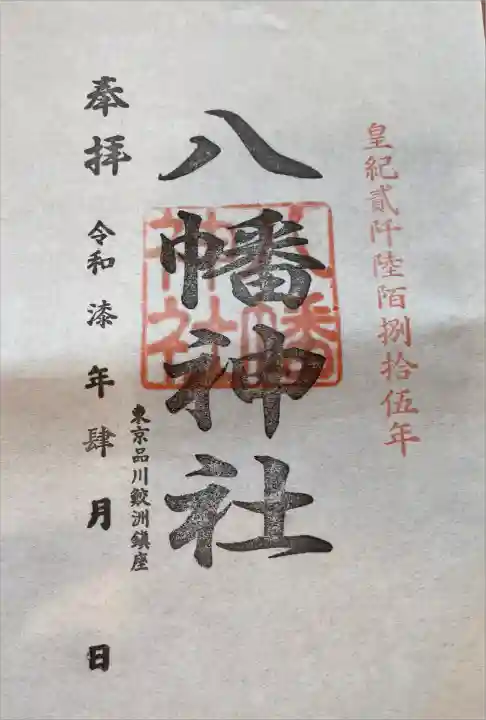 皇紀貳阡陸陌捌拾伍年
八幡神社
八幡神社
東京品川鮫洲鎮座
奉拝 令和漆年肆月 日